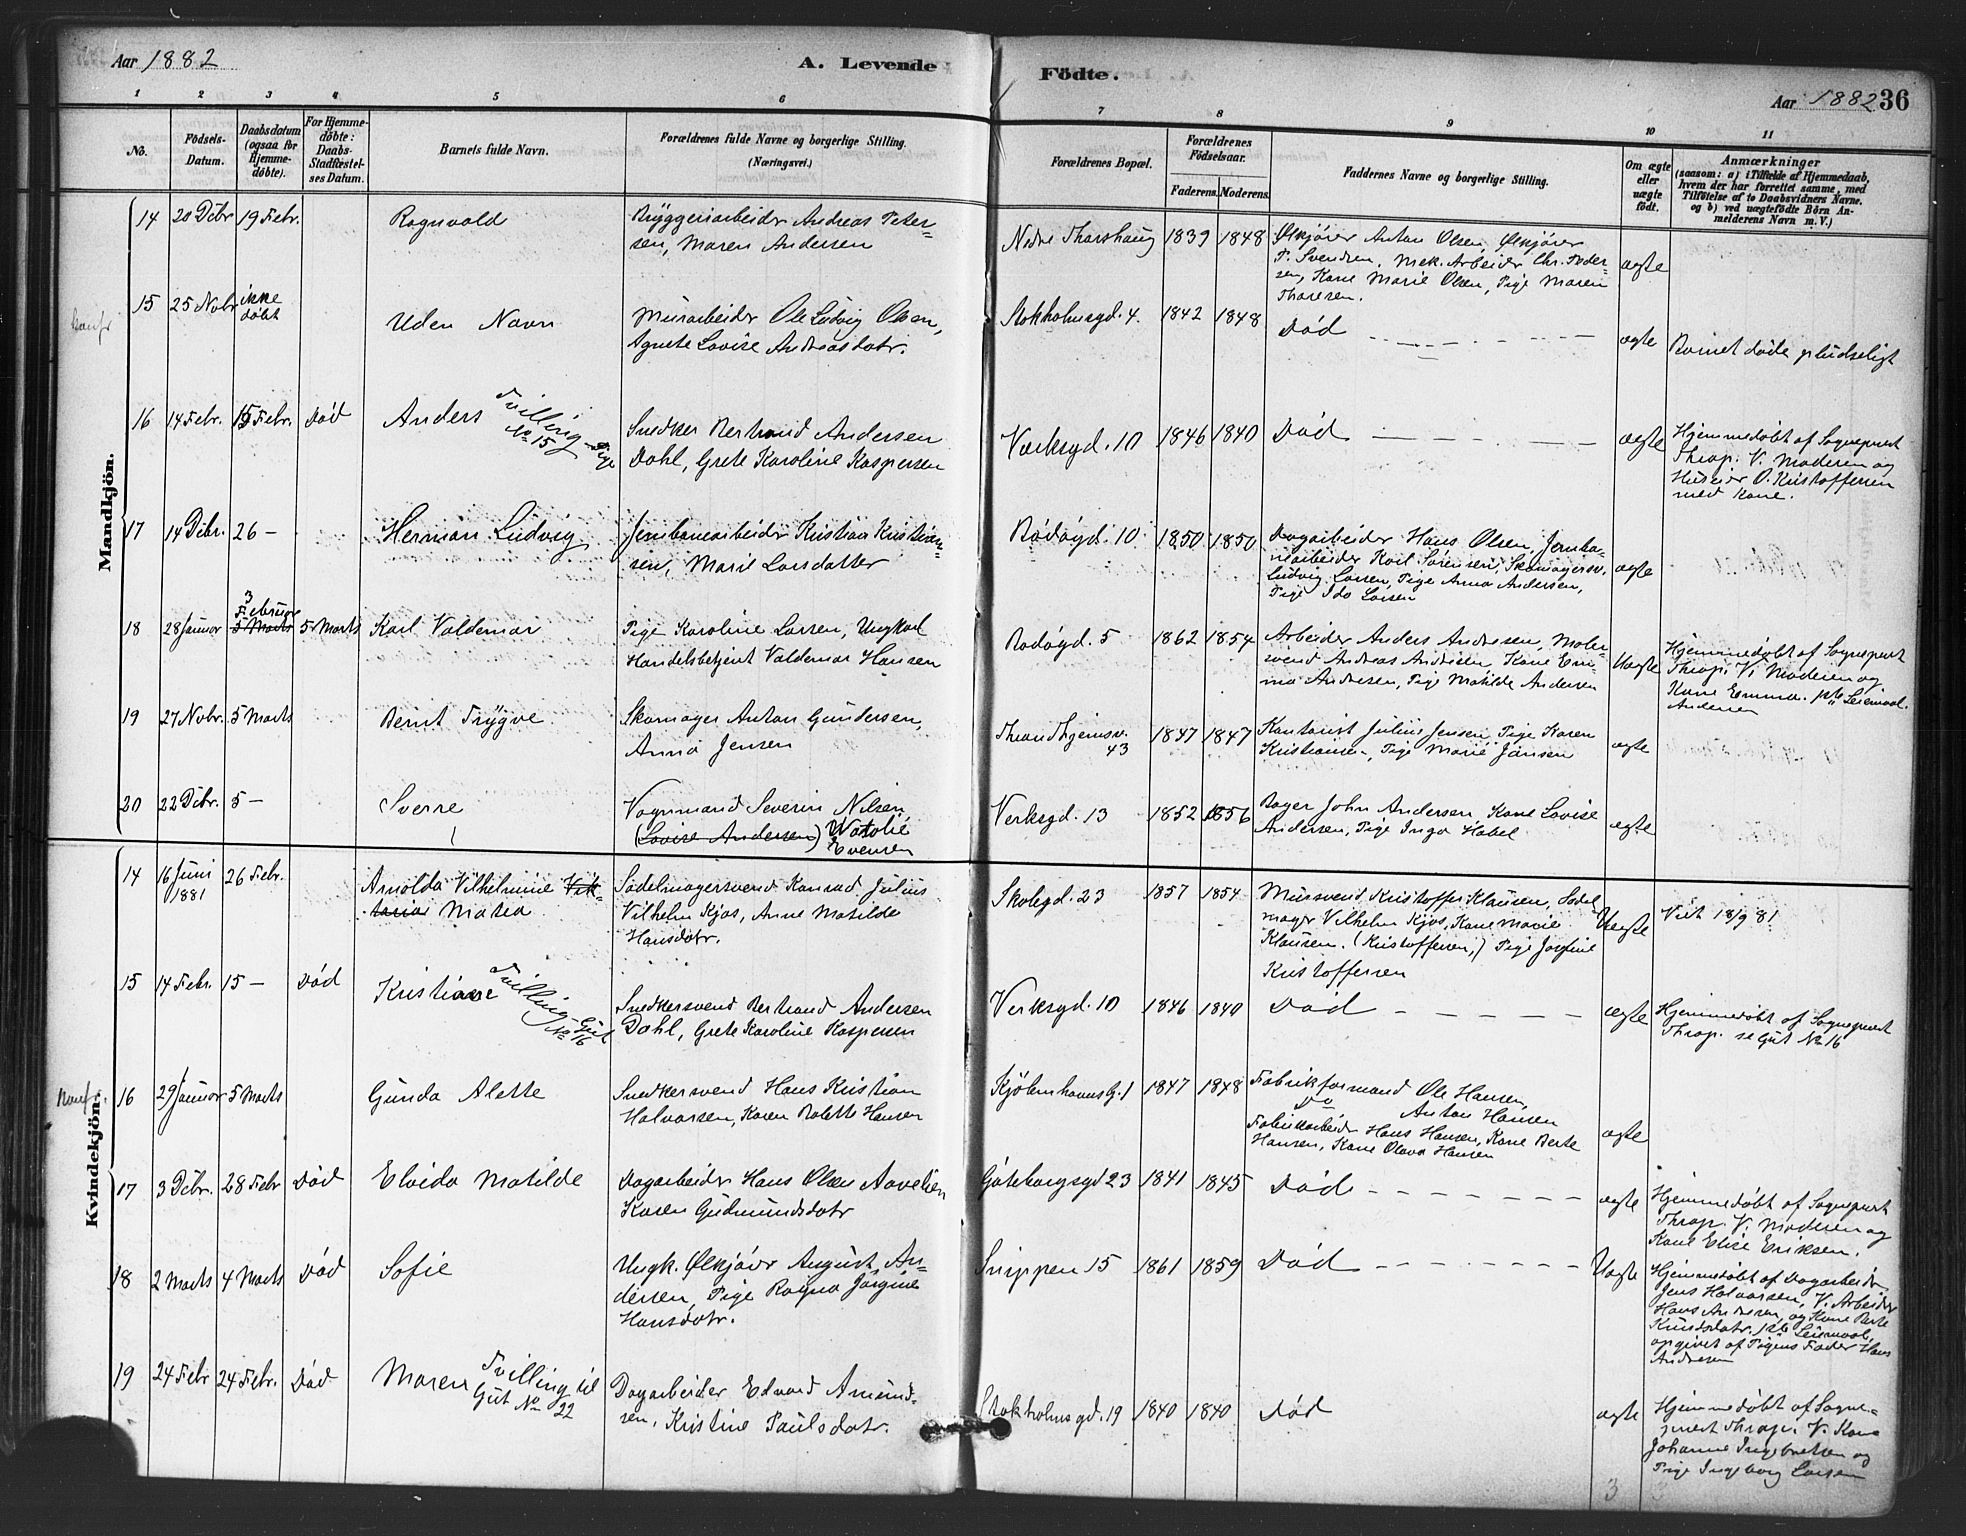 Aar 1882
A. Levende
Födte.
Aar 1882 36
1 2 3 4 5 6 7 8 9 10 11
No.
Födsels-
Datum.
Daabsdatum
(ogsaa for
Hjemme-
döbte).
For Hjemme-
döbte:
Daabs-
Stadfæstel-
ses Datum.
Barnets fulde Navn.
Forældrenes fulde Navne og borgerlige Stilling.
(Næringsvei.)
Forældrenes Bopæl.
Forældrenes
Födselsaar.
Faderens. Moderens.
Faddernes Navne og borgerlige Stilling.
Om ægte
eller
uægte
födt.
Anmærkninger
(saasom: a) i Tilfælde af Hjemmedaab,
hvem der har forrettet samme, med
Tilföielse af to Daabsvidners Navne.
og b) ved uægtefödte Börn An-
melderens Navn m. V.)
Mandkjön.
14 20 Dcbr 19 Febr.
Ragnvald
Bryggeriarbeider Andreas Peter-
sen, Maren Andersen
Nedre Thorshaug 1839 1848
Ølkjører Anton Olsen, Ølkjører
P. Svendsen, Mek. Arbeider Chr. Peder-
sen, Kone Marie Olsen, Pige Maren
Thoresen.
ægte
15 25 Novbr ikke
døbt
Uden Navn
Murarbeider Ole Ludvig Olsen,
Agnete Lovise Andreasdatr.
Stokholmsgd. 4. 1842 1848
Død
ægte
Barnet døde pludseligt
16 14 Febr. 15 Febr. Død
Anders Tvilling
No 15 Pige
Snedker Bertrand Andersen
Dahl, Grete Karoline Kaspersen
Verksgd. 10 1846 1840
Død
ægte
Hjemmedøbt af Sognepræst
Thrap. V. Moderen og
Huseier O. Kristoffersen
med Kone.
17 14 Dcbr. 26 —
Herman Ludvig
Jernbanearbeider Kristian Kristian-
sen, Marie Larsdatter
Rødøgd. 10 1850 1850
Dagarbeider Hans Olsen, Jernba-
nearbeider Karl Sørensen, Skomagersv.
Ludvig Larsen, Pige Anna Andersen,
Pige Ida Larsen
ægte
18 28 Januar 3
Februar
5 Marts 5 Marts
Karl Valdemar
Pige Karoline Larsen, Ungkarl
Handelsbetjent Valdemar Hansen
Rødøgd. 5 1862 1854
Arbeider Anders Andresen, Maler-
svend Andreas Andresen, Kone Em-
ma Andresen, Pige Matilde Andersen
Uægte
Hjemmedøbt af Sognepræst
Thrap. V. Moderen og
Kone Emma Leiermaal.
Andersen
19 27 Novbr. 5 Marts
Bernt Trygve
Skomager Anton Gundersen,
Anna Jensen
Throndhjemsv.
43 1847 1847
Kontorist Julius Jensen, Pige Karen
Kristiansen, Pige Marie Jansen
ægte
20 22 Dcbr. 5 —
Sverre
Vognmand Severin Nilsen,
(Lovise Andersen) Natalie
Evensen
Verksgd. 13 1852 1856
Bager John Andersen, Kone Lovise
Andersen, Pige Inga Habel
ægte
Kvindekjön.
14 16 Juni
1881 26 Febr.
Arnolda Vilhelmine Vik-
toria Maria
Sadelmagersvend Konrad Julius
Vilhelm Kjos, Anne Matilde
Hansdatr.
Skolegd. 23 1857 1854
Mursvend Kristoffer Klausen, Sadel
mager Vilhelm Kjos, Kone Marie
Klausen. (Kristoffersen,) Pige Josefine
Kristoffersen
Uægte
Viet 18/9 81
15 14 Febr. 15 — Død
Kristiane Tvilling
Gut No 16
Snedkersvend Bertrand Andersen
Dahl, Grete Karoline Kaspersen
Verksgd. 10 1846 1840
Død
ægte
Hjemmedøbt af Sognepræst
Thrap. se Gut No 16
16 29 Januar 5 Marts
Gunda Alette
Snedkersvend Hans Kristian
Halvorsen, Karen Bolette Hansen
Kjøbenhavnsg. 1 1847 1848
Fabrikformand Ole Hansen,
Anton Hansen
Fabrikarbeider Hans Hansen, Kone Berte
Hansen, Kone Olava Hansen
ægte
17 3 Dcbr. 28 Febr Død
Elvida Matilde
Dagarbeider Hans Olsen Aavelien
Karen Gudmundsdatr
Gøteborgsgd 23 1841 1845
Død
ægte
Hjemmedøbt af Sognepræst
Thrap. V. Moderen og
Kone Elise Eriksen.
18 2 Marts 4 Marts Død
Sofie
Ungk. Ølkjører August An-
dersen, Pige Ragna Jørgine
Hansdatr.
Snippen 15 1861 1859
Død
Uægte
Hjemmedøbt af Dagarbeider
Jens Halvorsen, V. Arbeider
Hans Andresen, og Kone Berte
Knudsdatr. Leiermaal,
opgivet af Pigens Fader Hans
Andresen
19 24 Febr 24 Febr. Død
Maren Tvilling til
Gut No 22
Dagarbeider Edvard Amund-
sen, Kristine Paulsdatr.
Stokholmsgd. 19 1840 1840
Død
ægte
Hjemmedøbt af Sogne-
præst Thrap. V. Kone
Johanne Ingebretsen og
Pige Ingeborg Larsen
3